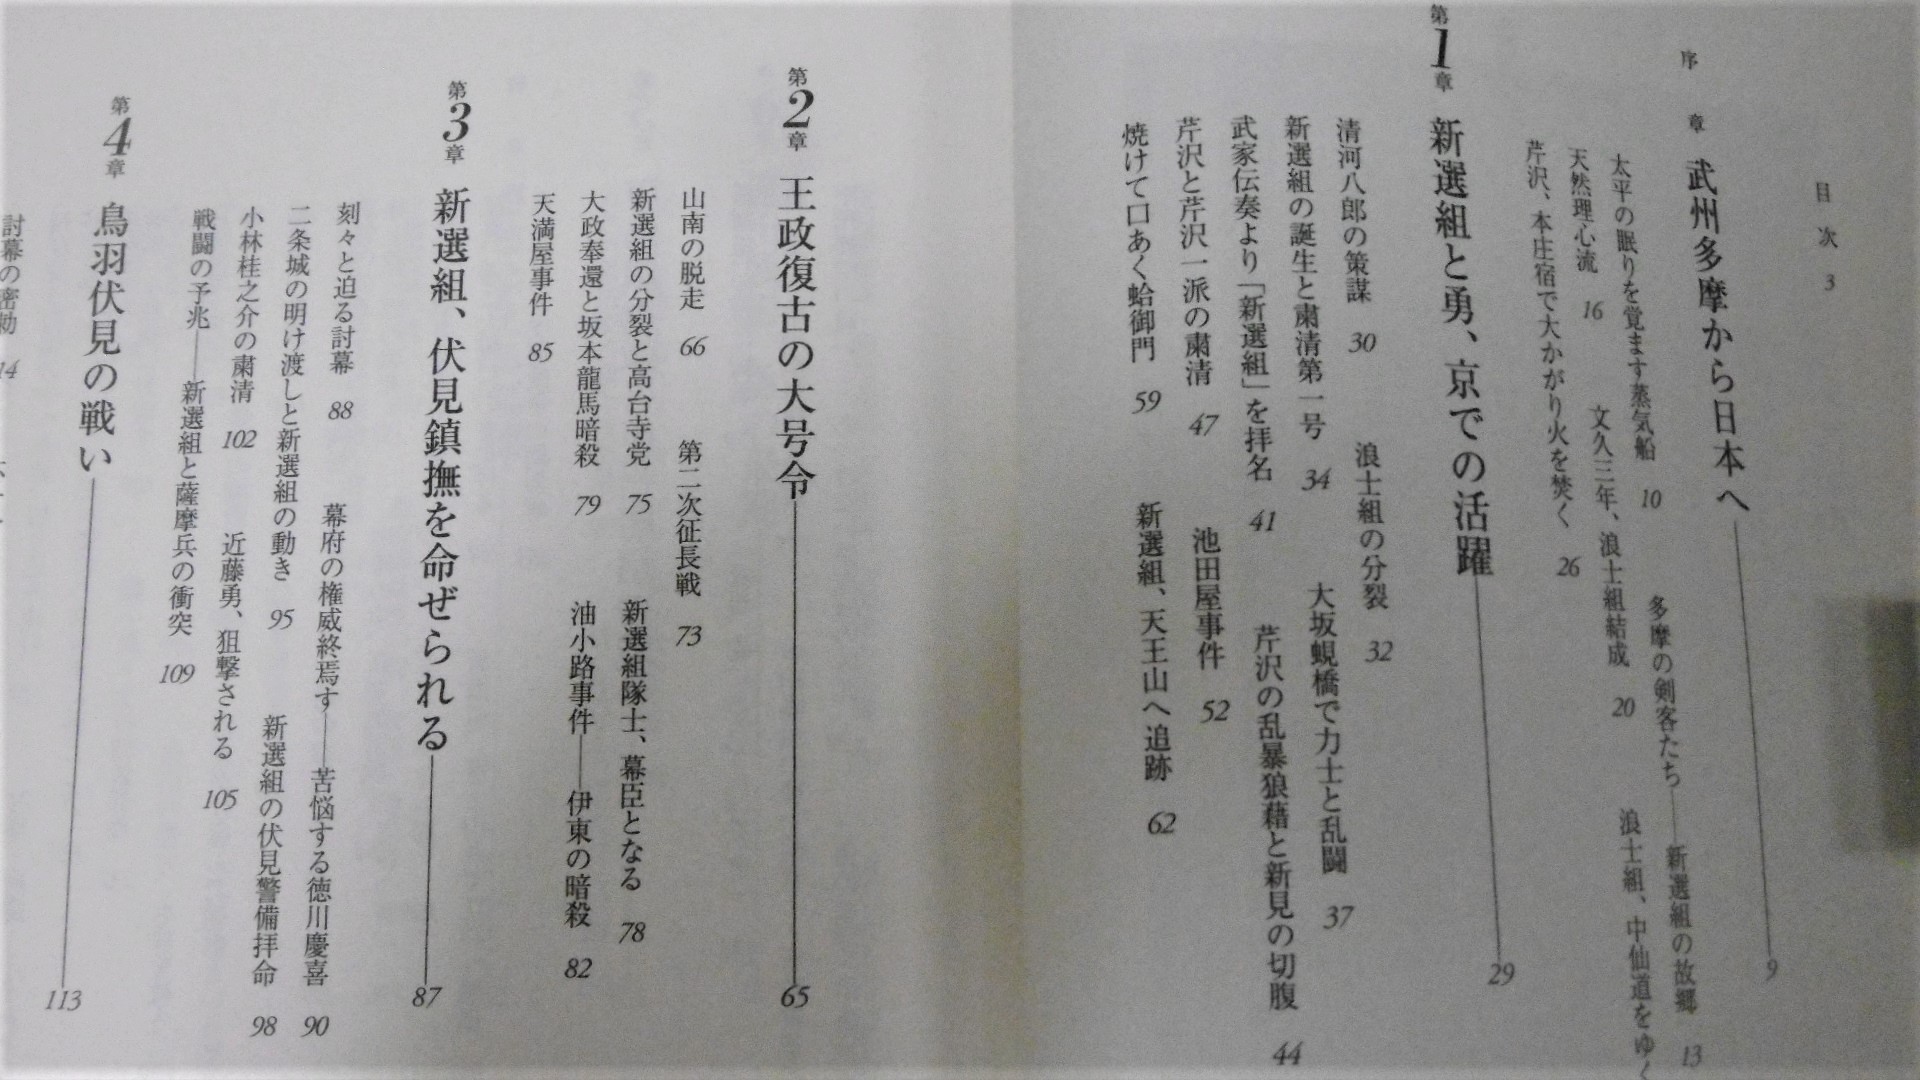 目次 3
序章 武州多摩から日本へ 9
太平の眠りを覚ます蒸気船 10 多摩の剣客たち――新選組の故郷 13
天然理心流 16 文久三年、浪士組結成 20 浪士組、中仙道をゆく
芹沢、本庄宿で大かがり火を焚く 26
第1章 新選組と勇、京での活躍 29
清河八郎の策謀 30 浪士組の分裂 32
新選組の誕生と粛清第一号 34 大坂蜆橋で力士と乱闘 37
武家伝奏より「新選組」を拝名 41 芹沢の乱暴狼藉と新見の切腹 44
芹沢と芹沢一派の粛清 47 池田屋事件 52
焼けて口あく蛤御門 59 新選組、天王山へ追跡 62
第2章 王政復古の大号令 65
山南の脱走 66 第二次征長戦 73
新選組の分裂と高台寺党 75 新選組隊士、幕臣となる 78
大政奉還と坂本龍馬暗殺 79 油小路事件――伊東の暗殺 82
天満屋事件 85
第3章 新選組、伏見鎮撫を命ぜられる 87
刻々と迫る討幕 88 幕府の権威終焉す――苦悩する徳川慶喜 90
二条城の明け渡しと新選組の動き 95 新選組の伏見警備拝命 98
小林桂之介の粛清 102 近藤勇、狙撃される 105
戦闘の予兆――新選組と薩摩兵の衝突 109
第4章 鳥羽伏見の戦い 113
討幕の密勅